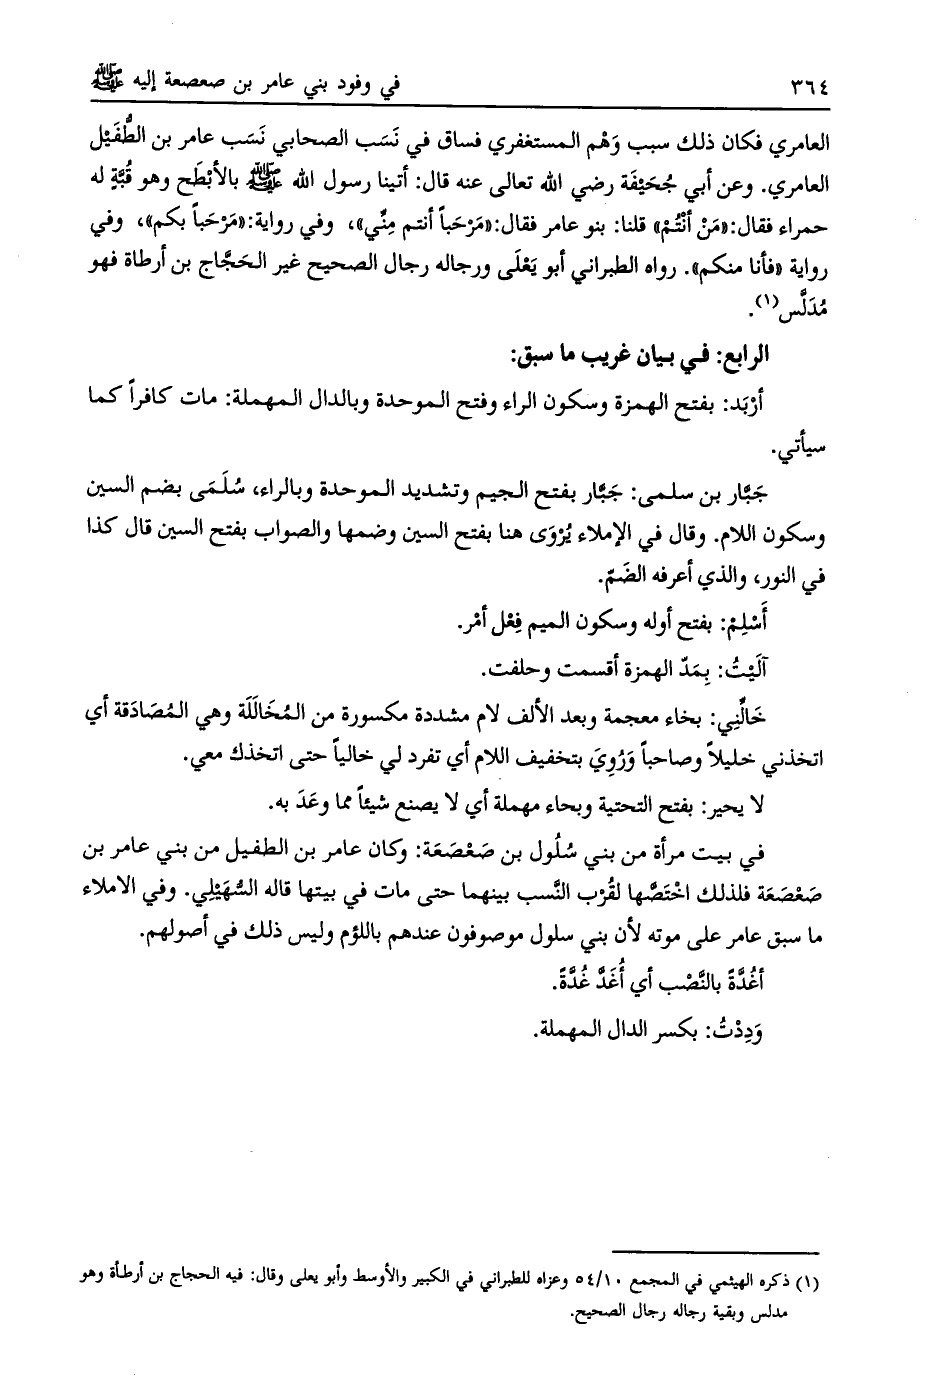 ٣٦٤ في وفود بني عامر بن صعصعة إليه ﷺ
العامري فكان ذلك سبب وَهْم المستغفري فساق في نَسَب الصحابي نَسَب عامر بن الطُّفَيْل
العامري. وعن أبي جُحَيْفَة رضي الله تعالى عنه قال: أتينا رسول الله ﷺ بالأبْطَح وهو قُبَّةٍ له
حمراء فقال: «مَنْ أنْتُمْ» قلنا: بنو عامر فقال: «مَرْحَباً أنتم مِنِّي»، وفي رواية: «مَرْحَباً بكم»، وفي
رواية «فأنا منكم». رواه الطبراني أبو يَعْلَى ورجاله رجال الصحيح غير الحَجَّاج بن أرطاة فهو
مُدَلَّس(١).
الرابع: في بيان غريب ما سبق:
أرْبَد: بفتح الهمزة وسكون الراء وفتح الموحدة وبالدال المهملة: مات كافراً كما
سيأتي.
جَبَّار بن سلمى: جَبَّار بفتح الجيم وتشديد الموحدة وبالراء، سُلَمَى بضم السين
وسكون اللام. وقال في الإملاء يُرْوَى هنا بفتح السين وضمها والصواب بفتح السين قال كذا
في النور، والذي أعرفه الضَمّ.
أَسْلِمْ: بفتح أوله وسكون الميم فِعْل أمْر.
آلَيْتُ: بِمَدّ الهمزة أقسمت وحلفت.
خَالِّنِي: بخاء معجمة وبعد الألف لام مشددة مكسورة من المُخَالَلَة وهي المُصَادَقة أي
اتخذني خليلاً وصاحباً وَرُوِيَ بتخفيف اللام أي تفرد لي خالياً حتى اتخذك معي.
لا يحير: بفتح التحتية وبحاء مهملة أي لا يصنع شيئاً مما وعَدَ به.
في بيت مرأة من بني سُلُول بن صَعْصَعَة: وكان عامر بن الطفيل من بني عامر بن
صَعْصَعَة فلذلك اخْتَصَّها لقُرْب النَّسب بينهما حتى مات في بيتها قاله السُّهَيْلِي. وفي الاملاء
ما سبق عامر على موته لأن بني سلول موصوفون عندهم باللؤم وليس ذلك في أصولهم.
أغُدَّةً بالنَّصْب أي أُغَدَّ غُدَّةً.
وَدِدْتُ: بكسر الدال المهملة.
(١) ذكره الهيثمي في المجمع ٥٤/١٠ وعزاه للطبراني في الكبير والأوسط وأبو يعلى وقال: فيه الحجاج بن أرطأة وهو
مدلس وبقية رجاله رجال الصحيح.